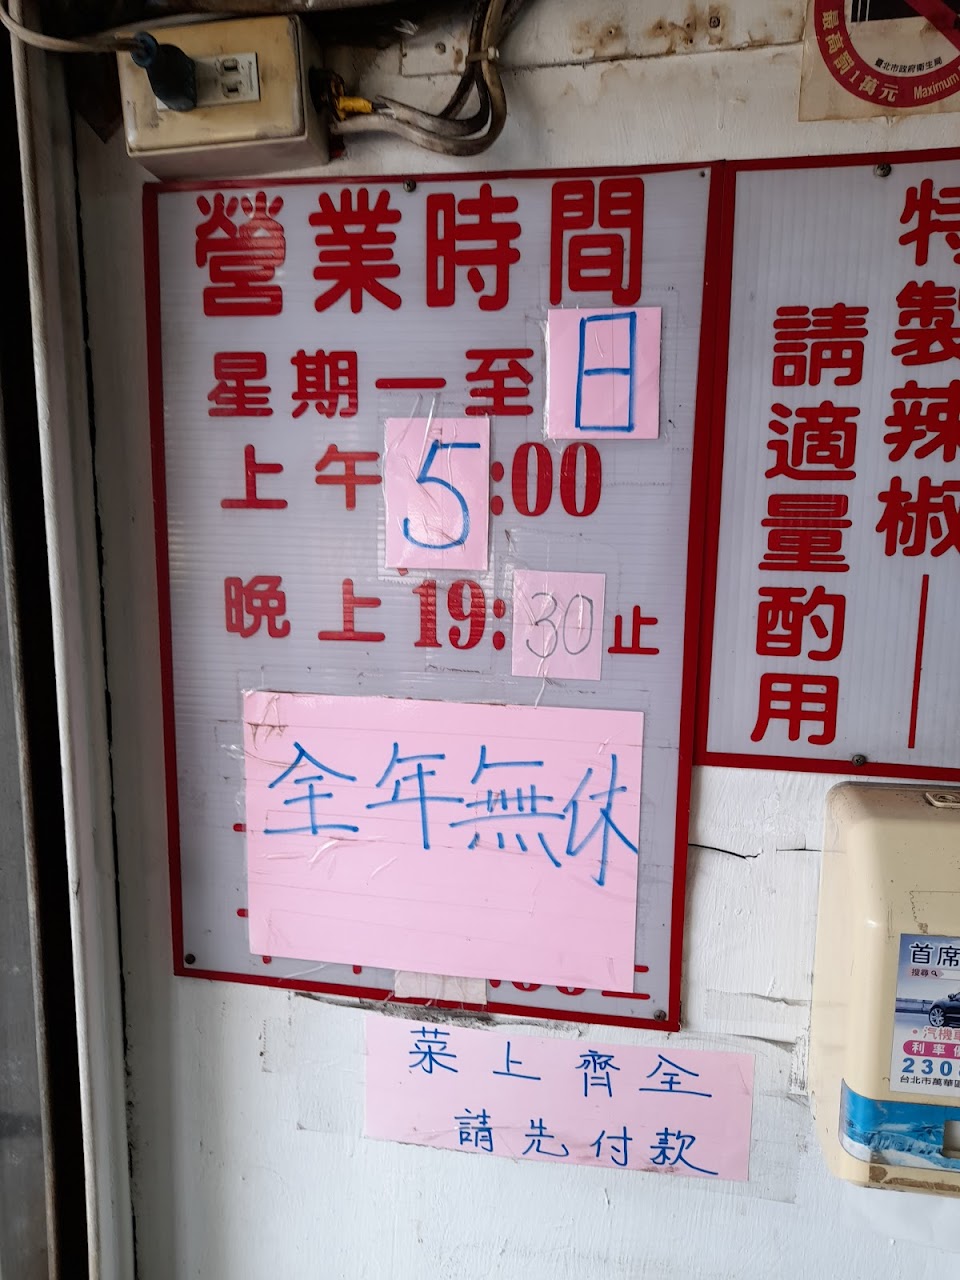 最高罰1萬元 Maximum
臺北市政府衛生局
營業時間
星期一至日
上午5:00
晚上19:30止
全年無休
菜上齊全
請先付款
特製辣椒
請適量酌用
首席
搜尋
汽機車
利率
230
台北市萬華區